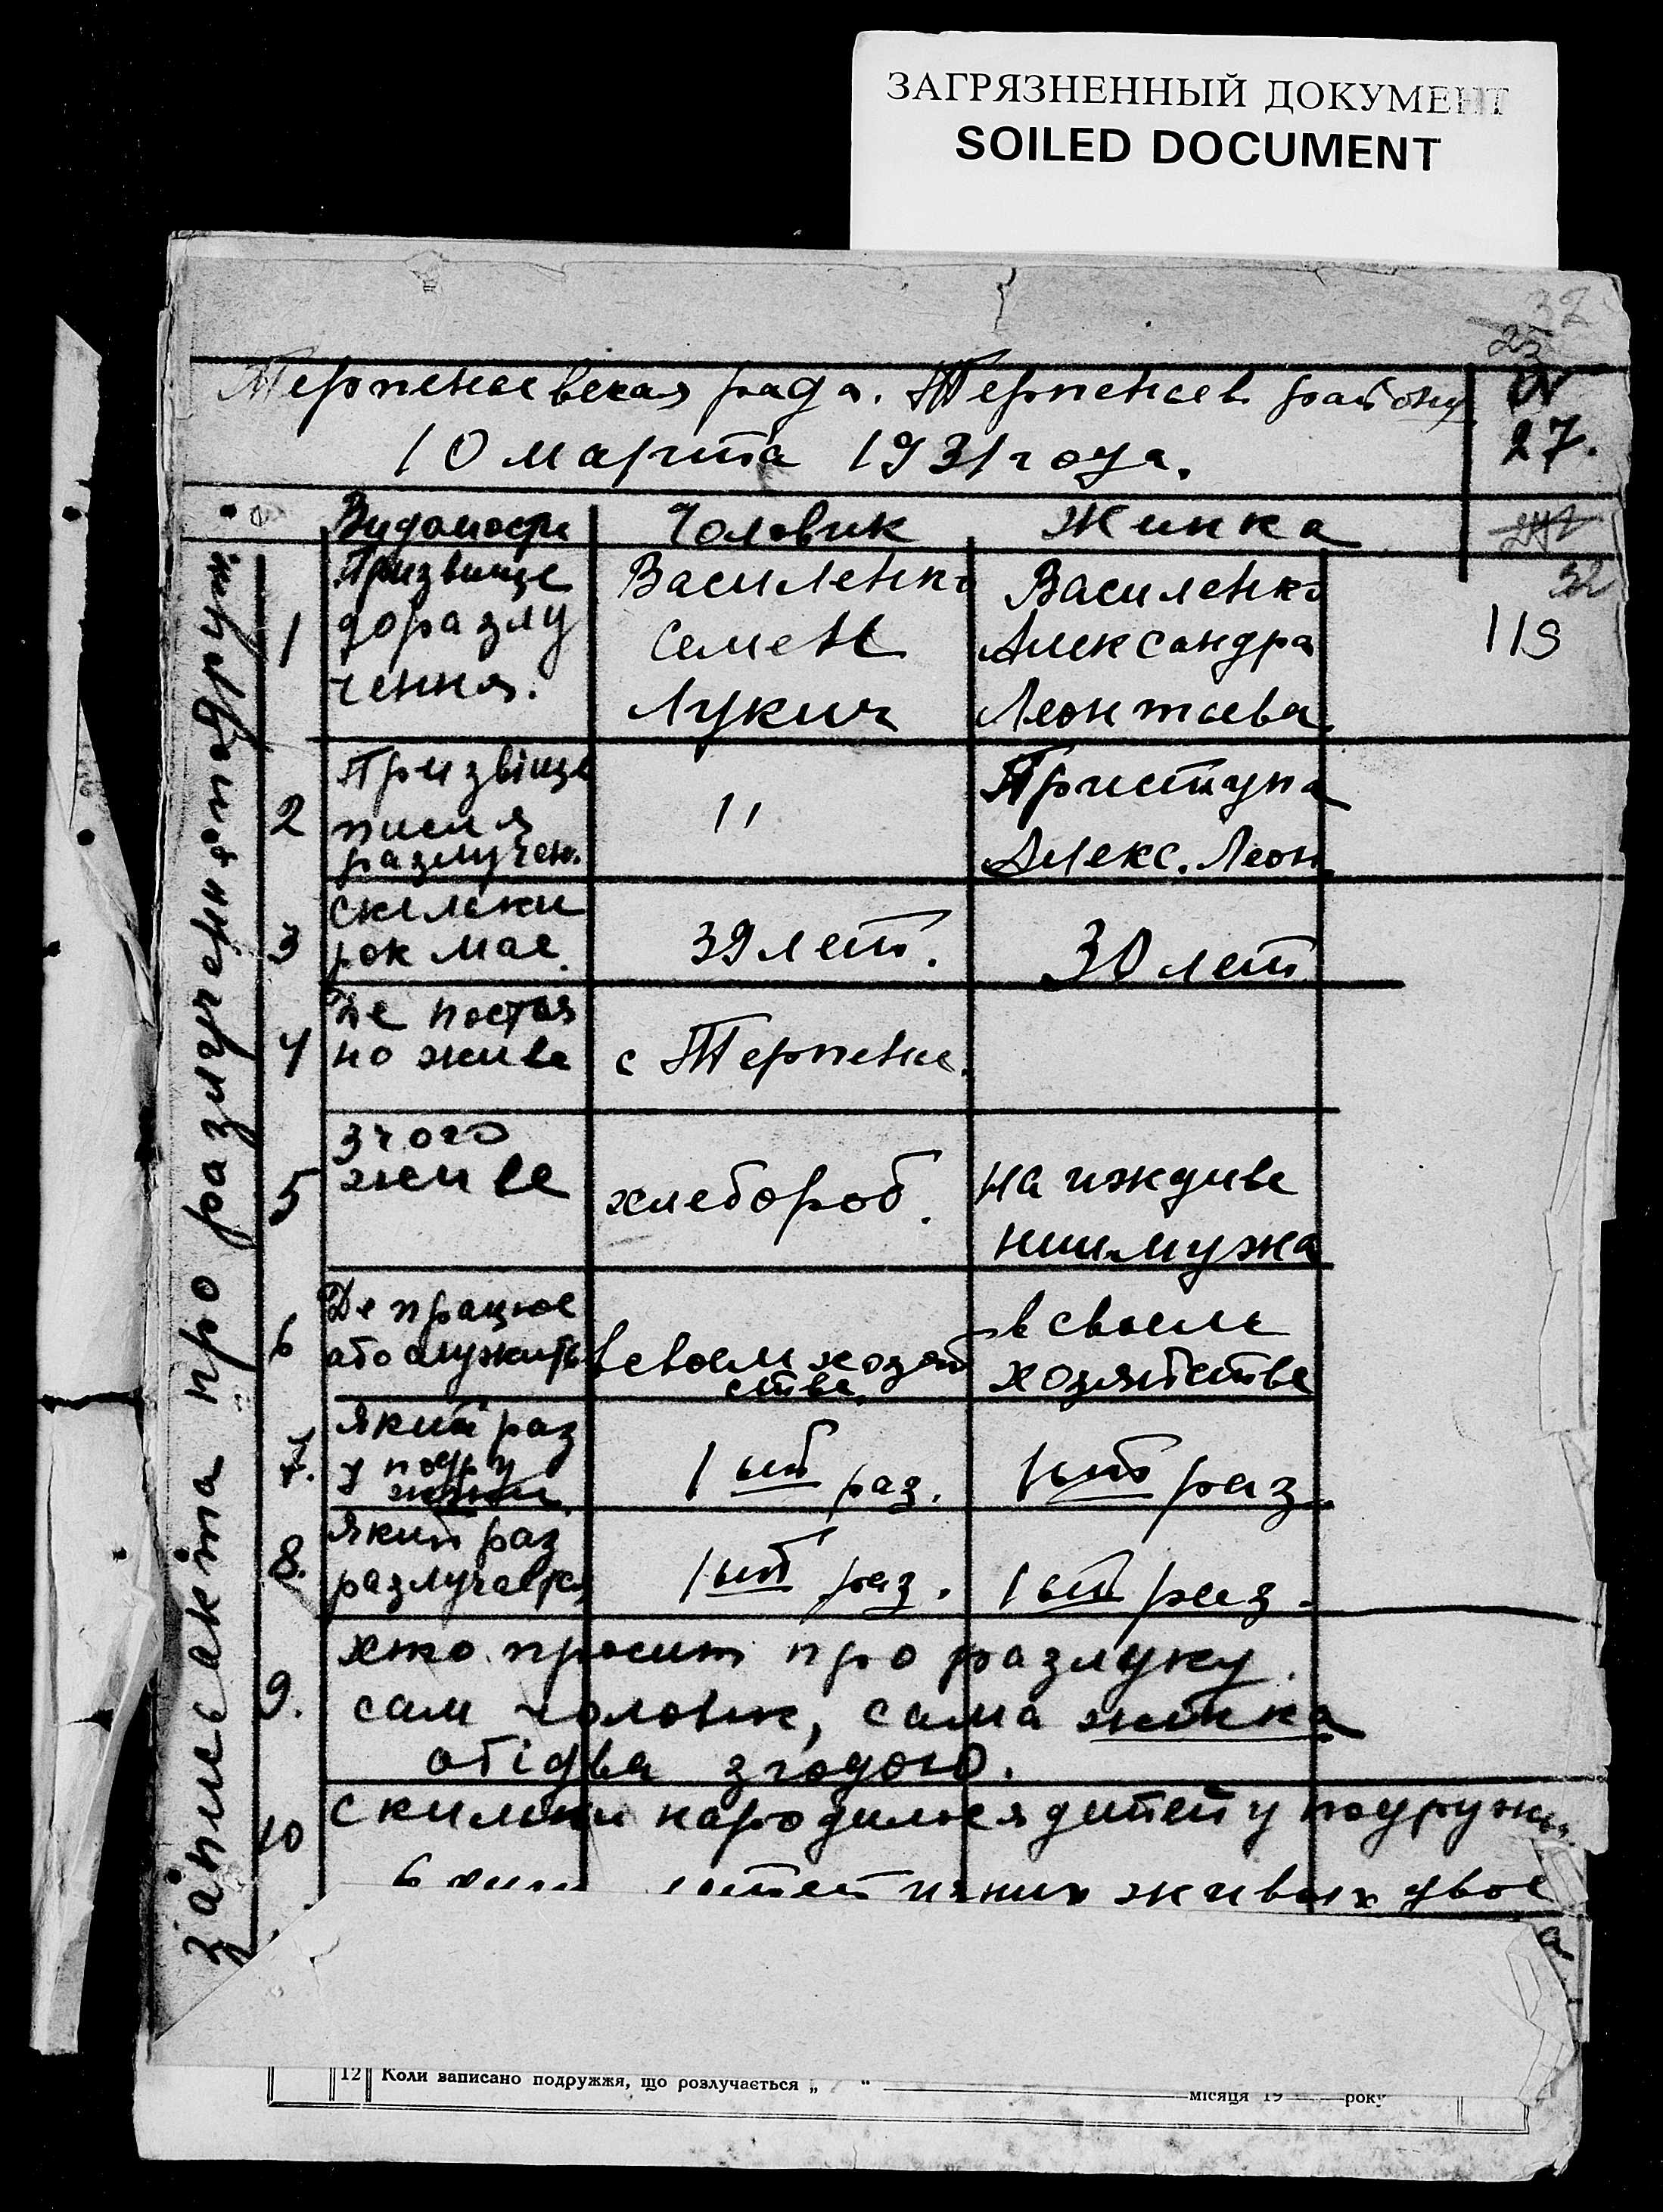 ЗАГРЯЗНЕННЫЙ ДОКУМЕНТ
SOILED DOCUMENT
32
23
Терпеньевская рада. Терпеньев району
10 марта 1931 года.
N
27.
Видомости
Чоловик
Жинка
32
запись акта про разлучення подруж.
1
Призвище
до разлу
чення.
Василенко
Семен
Лукич
Василенко
Александра
Леонтьева
119
2
Призвіще
писля
разлучен.
"
Приступа
Алекс. Леон
3
скильки
рок мае.
39 лет.
30 лет
4
Де постоя
но живе
с Терпенье.
5
з чого
живе
хлебороб.
на иждиве
нии мужа
6
Де працюе
або служить
в своем хозяй
стве.
в своем
хозяйстве
7.
який раз
у подру
жжи
1ый раз.
1ый раз.
8.
Який раз
разлучается
1ый раз.
1ый раз.
9.
хто просит про разлуку.
сам чоловик, сама жинка
обідва згодою.
10
скильки народилося дитей у подружж.
6 детей из них живых двое
а
12 Коли записано подружжя, що розлучається „ “ місяця 19 року